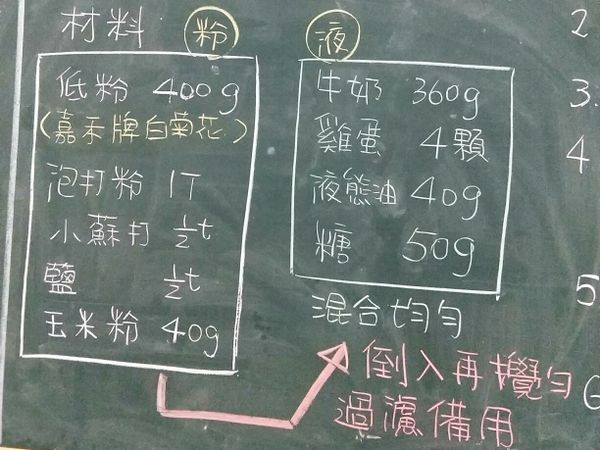 材料 粉
低粉 400g
(嘉禾牌白菊花)
泡打粉 1T
小蘇打 ½t
鹽 ½t
玉米粉 40g
液
牛奶 360g
雞蛋 4顆
液態油 40g
糖 50g
混合均勻
倒入再攪勻
過濾備用
2
3.
4
5